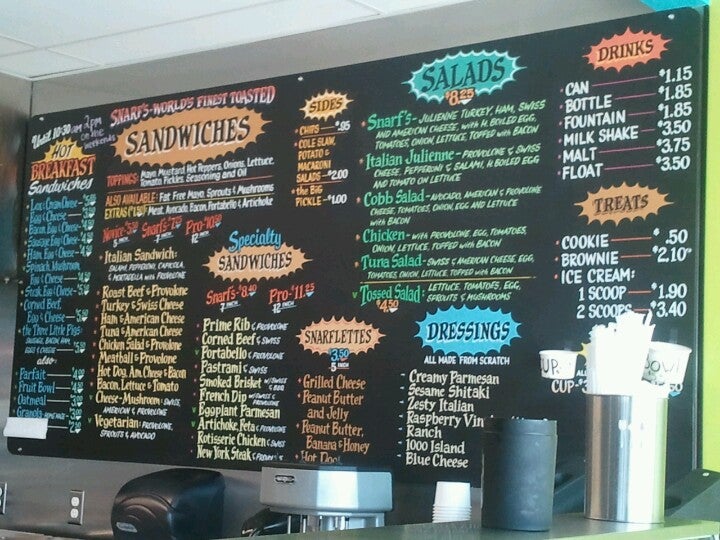 Until 10:30 AM 2pm on the weekends
HOT
BREAKFAST
Sandwiches
Lox & Cream Cheese
Egg & Cheese
Bacon, Egg & Cheese
Sausage, Egg & Cheese
Ham, Egg & Cheese
Spinach, Mushroom,
Egg & Cheese
Steak, Egg & Cheese
Corned Beef,
Egg & Cheese
the Three Little Pigs:
SAUSAGE, BACON, HAM,
EGGS & CHEESE
also~
Parfait
Fruit Bowl
Oatmeal
Granola
SNARF'S-WORLD'S FINEST TOASTED
SANDWICHES
TOPPINGS: Mayo, Mustard, Hot Peppers, Onions, Lettuce,
Tomato, Pickles, Seasoning and Oil
ALSO AVAILABLE: Fat Free Mayo, Sprouts & Mushrooms
EXTRAS Meat, Avocado, Bacon, Portabello & Artichoke
Novice- Snarf's- Pro-
5 INCH 7 INCH 12 INCH
Italian Sandwich:
SALAMI, PEPPERONI, CAPICOLA,
& MORTADELLA with PROVOLONE
Roast Beef & Provolone
Turkey & Swiss Cheese
Ham & American Cheese
Tuna & American Cheese
Chicken Salad & Provolone
Meatball & Provolone
Hot Dog, Am. Cheese & Bacon
Bacon, Lettuce & Tomato
Cheese-Mushroom SWISS,
AMERICAN & PROVOLONE
Vegetarian: PROVOLONE,
SPROUTS & AVOCADO
Specialty
SANDWICHES
Snarf's-$8.40 Pro-$11.25
7 INCH 12 INCH
Prime Rib & PROVOLONE
Corned Beef & SWISS
Portabello & PROVOLONE
Pastrami & SWISS
Smoked Brisket w/SWISS & BBQ
French Dip w/SWISS & PROVOLONE
Eggplant Parmesan
Artichoke, Feta & PROVOLONE
Rotisserie Chicken & SWISS
New York Steak & PROVOLONE
SIDES
CHIPS .95
COLE SLAW,
POTATO &
MACARONI
SALADS $2.00
the BIG
PICKLE $1.00
SNARFLETTES
$3.50
5 INCH
Grilled Cheese
Peanut Butter
and Jelly
Peanut Butter,
Banana & Honey
Hot Dog
SALADS
$8.25
Snarf's - JULIENNE TURKEY, HAM, SWISS
AND AMERICAN CHEESE, with H. BOILED EGG,
TOMATOES, ONION, LETTUCE, TOPPED with BACON
Italian Julienne - PROVOLONE & SWISS
CHEESE, PEPPERONI & SALAMI, H. BOILED EGG
AND TOMATO ON LETTUCE
Cobb Salad - AVOCADO, AMERICAN & PROVOLONE
CHEESE, TOMATOES, ONION, EGG AND LETTUCE
with BACON
Chicken - with PROVOLONE, EGG, TOMATOES,
ONION, LETTUCE, TOPPED with BACON
Tuna Salad - SWISS & AMERICAN CHEESE, EGG,
TOMATOES, ONION, LETTUCE TOPPED with BACON
Tossed Salad - LETTUCE, TOMATOES, EGG,
SPROUTS & MUSHROOMS
$4.50
DRESSINGS
ALL MADE FROM SCRATCH
Creamy Parmesan
Sesame Shitaki
Zesty Italian
Raspberry Vin
Ranch
1000 Island
Blue Cheese
DRINKS
CAN $1.15
BOTTLE $1.85
FOUNTAIN $1.85
MILK SHAKE $3.50
MALT $3.75
FLOAT $3.50
TREATS
COOKIE $.50
BROWNIE $2.10
ICE CREAM:
1 SCOOP $1.90
2 SCOOPS $3.40
CUP
BOWL
CUP-